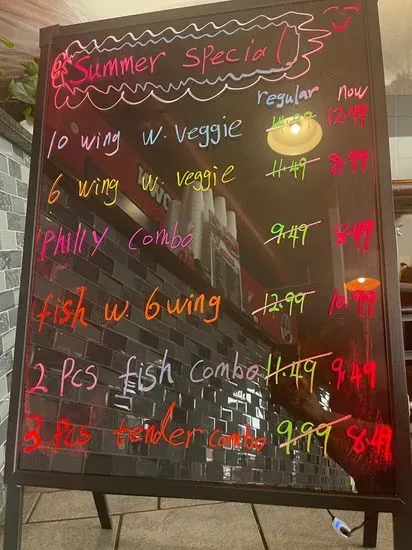 Summer Special
regular now
10 wing w. veggie 12.99
6 wing w. veggie 11.49 8.99
Philly combo 9.49 8.49
fish w. 6 wing 12.99 10.99
2 Pcs fish combo 11.49 9.49
3 Pcs tender combo 9.99 8.49